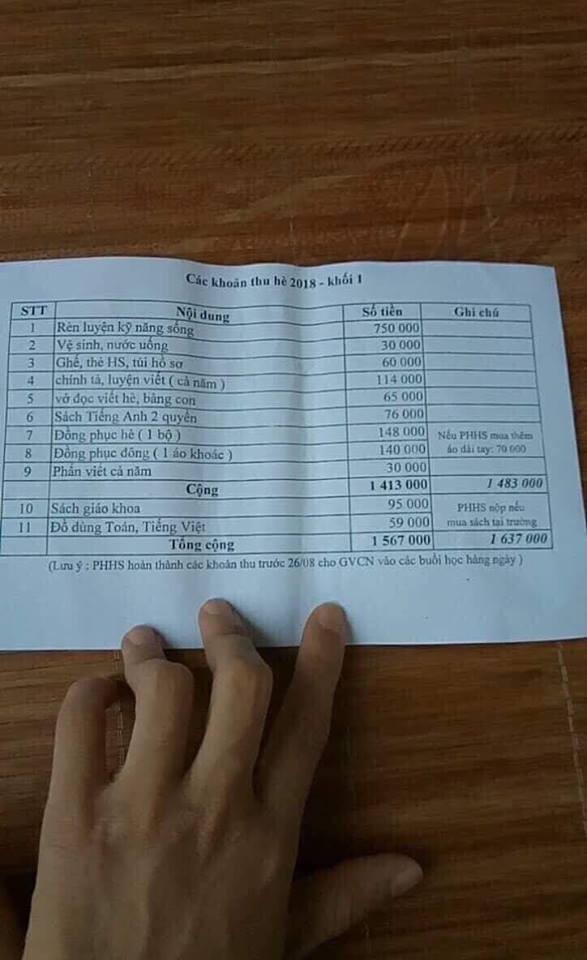 Các khoản thu hè 2018 - khối 1
STT Nội dung Số tiền Ghi chú
1 Rèn luyện kỹ năng sống 750 000
2 Vệ sinh, nước uống 30 000
3 Ghế, thẻ HS, túi hồ sơ 60 000
4 chính tả, luyện viết ( cả năm ) 114 000
5 vở đọc viết hè, bảng con 65 000
6 Sách Tiếng Anh 2 quyển 76 000
7 Đồng phục hè ( 1 bộ ) 148 000 Nếu PHHS mua thêm
8 Đồng phục đông ( 1 áo khoác ) 140 000 áo dài tay: 70 000
9 Phấn viết cả năm 30 000
Cộng 1 413 000 1 483 000
10 Sách giáo khoa 95 000 PHHS nộp nếu
11 Đồ dùng Toán, Tiếng Việt 59 000 mua sách tại trường
Tổng cộng 1 567 000 1 637 000
(Lưu ý : PHHS hoàn thành các khoản thu trước 26/08 cho GVCN vào các buổi học hàng ngày )